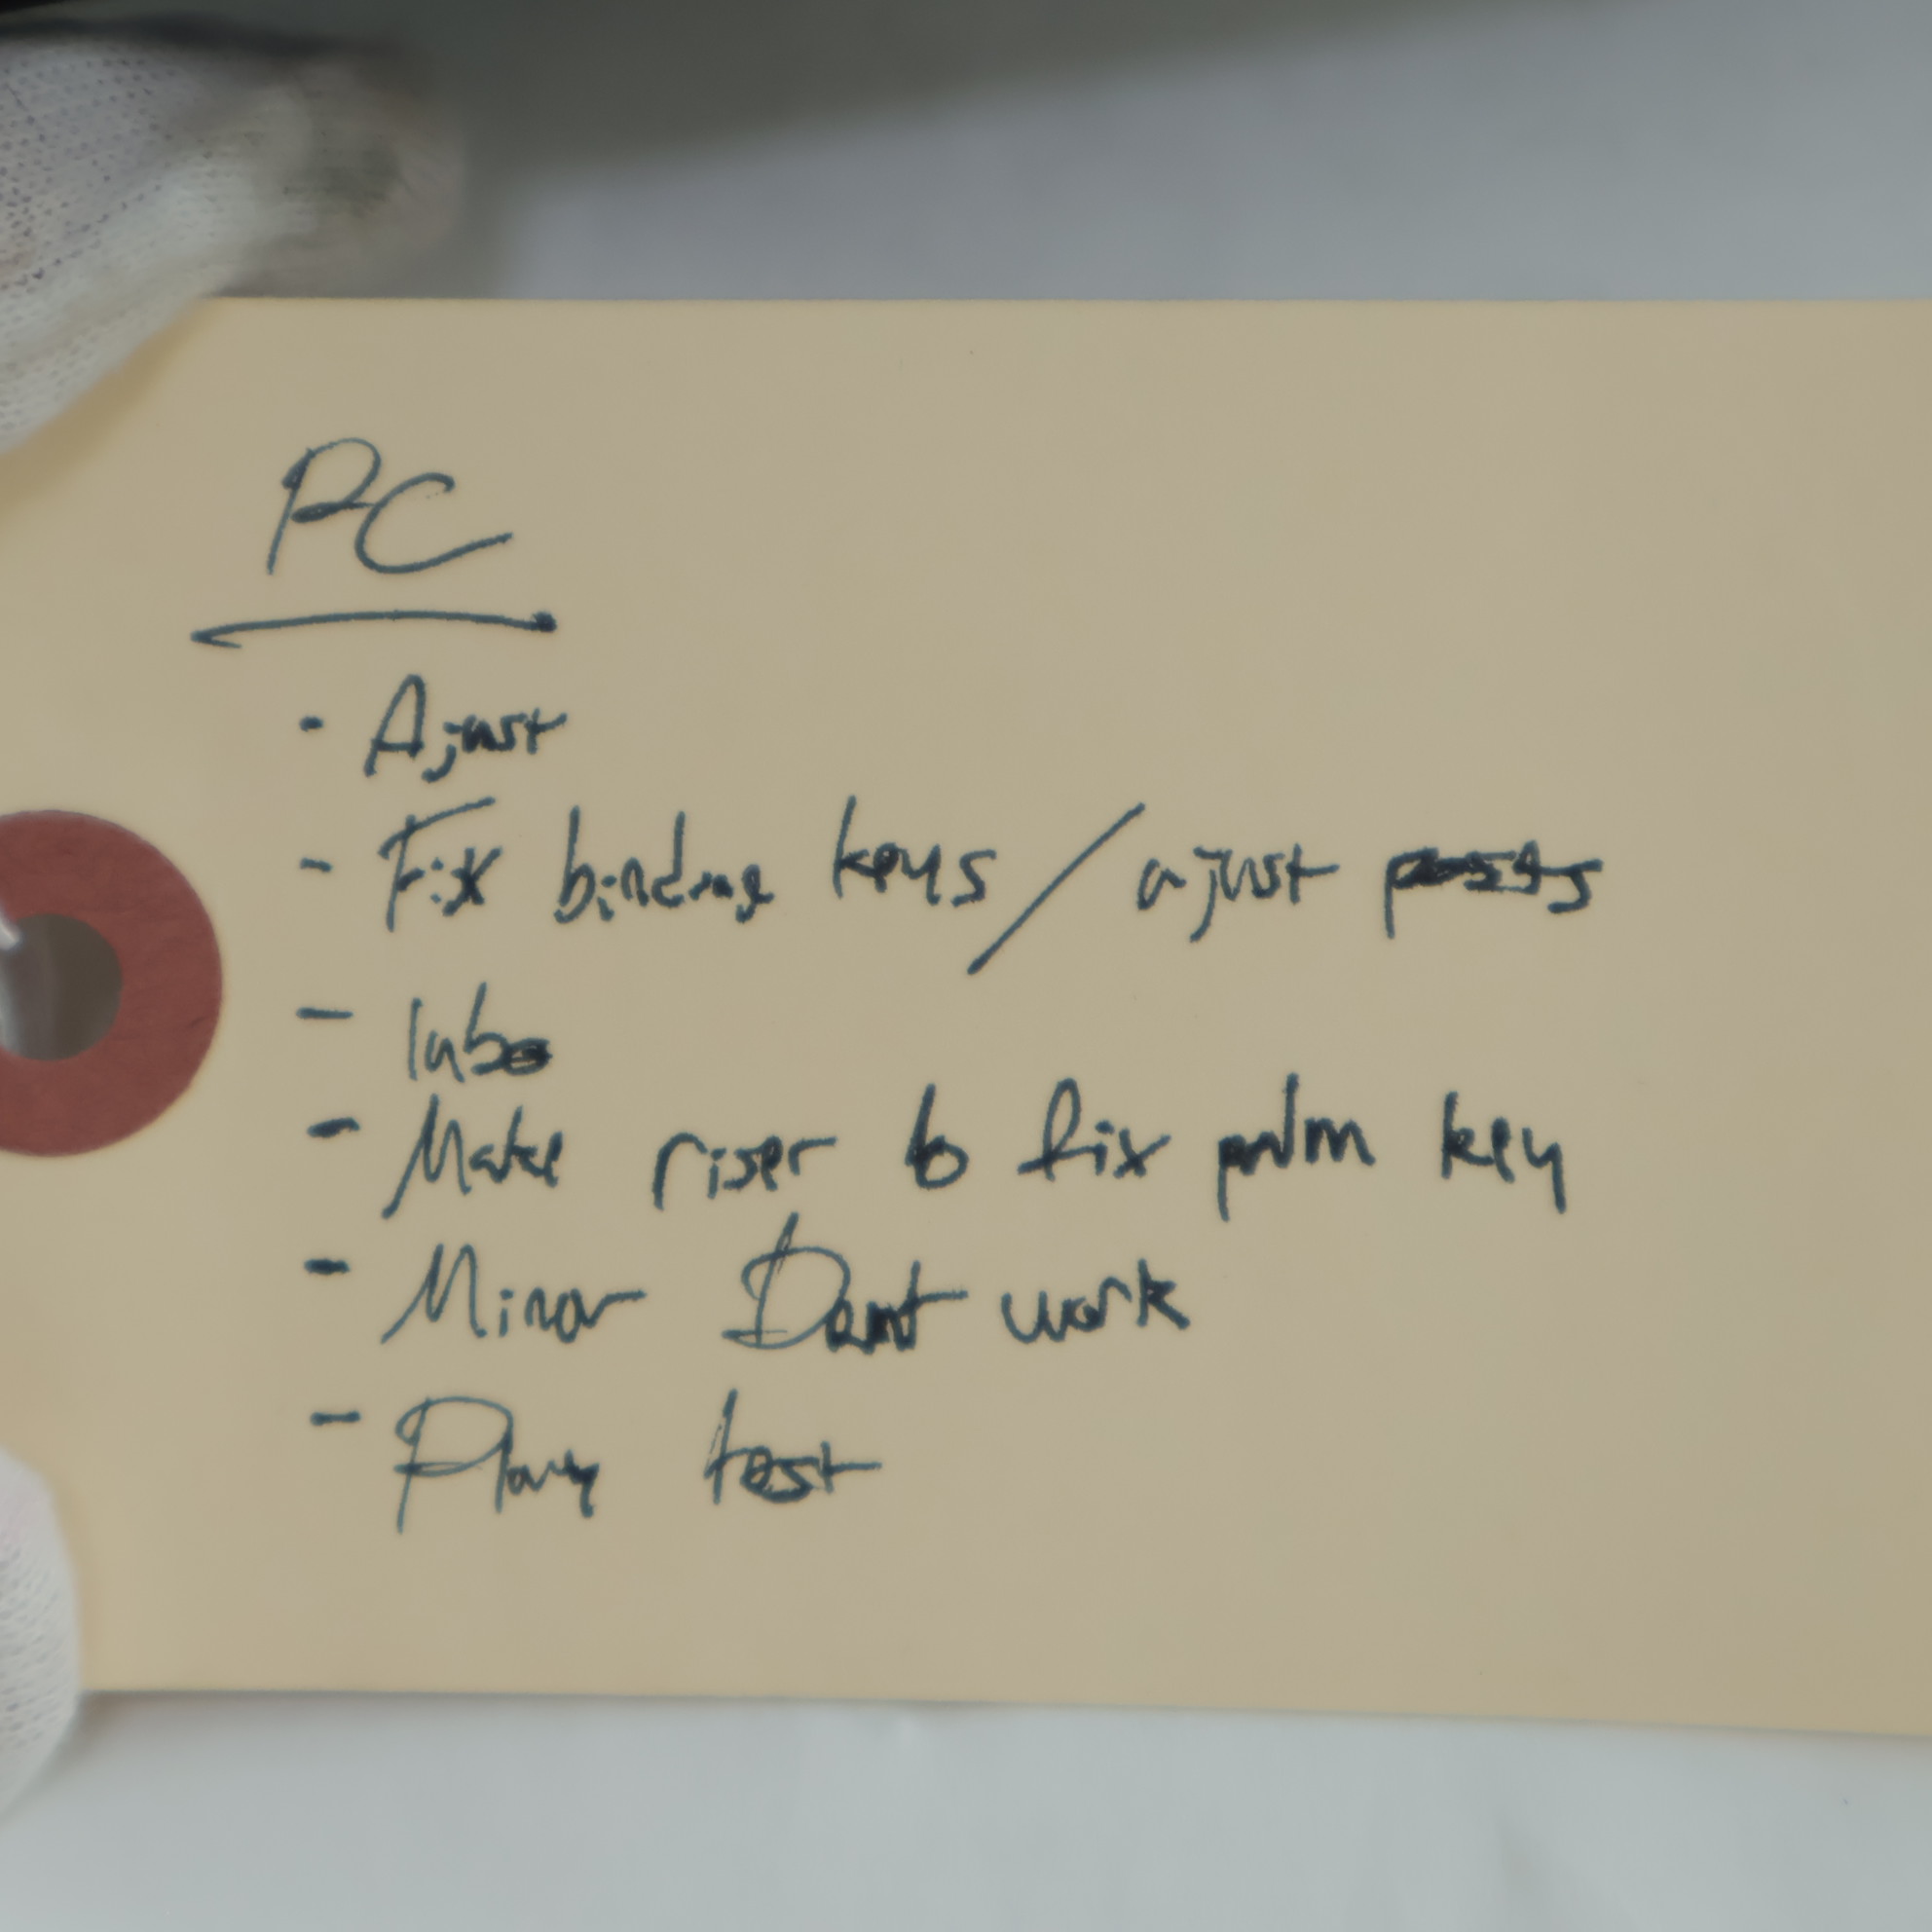 PC
- Ajust
- Fix binding keys / ajust posts
- lube
- Make riser to fix palm key
- Minor Dent work
- Play test